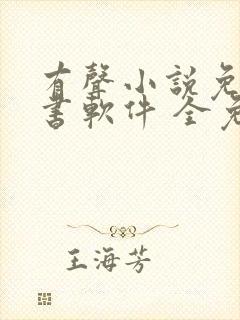 有聲小説免
書軟件 全免
王海芳